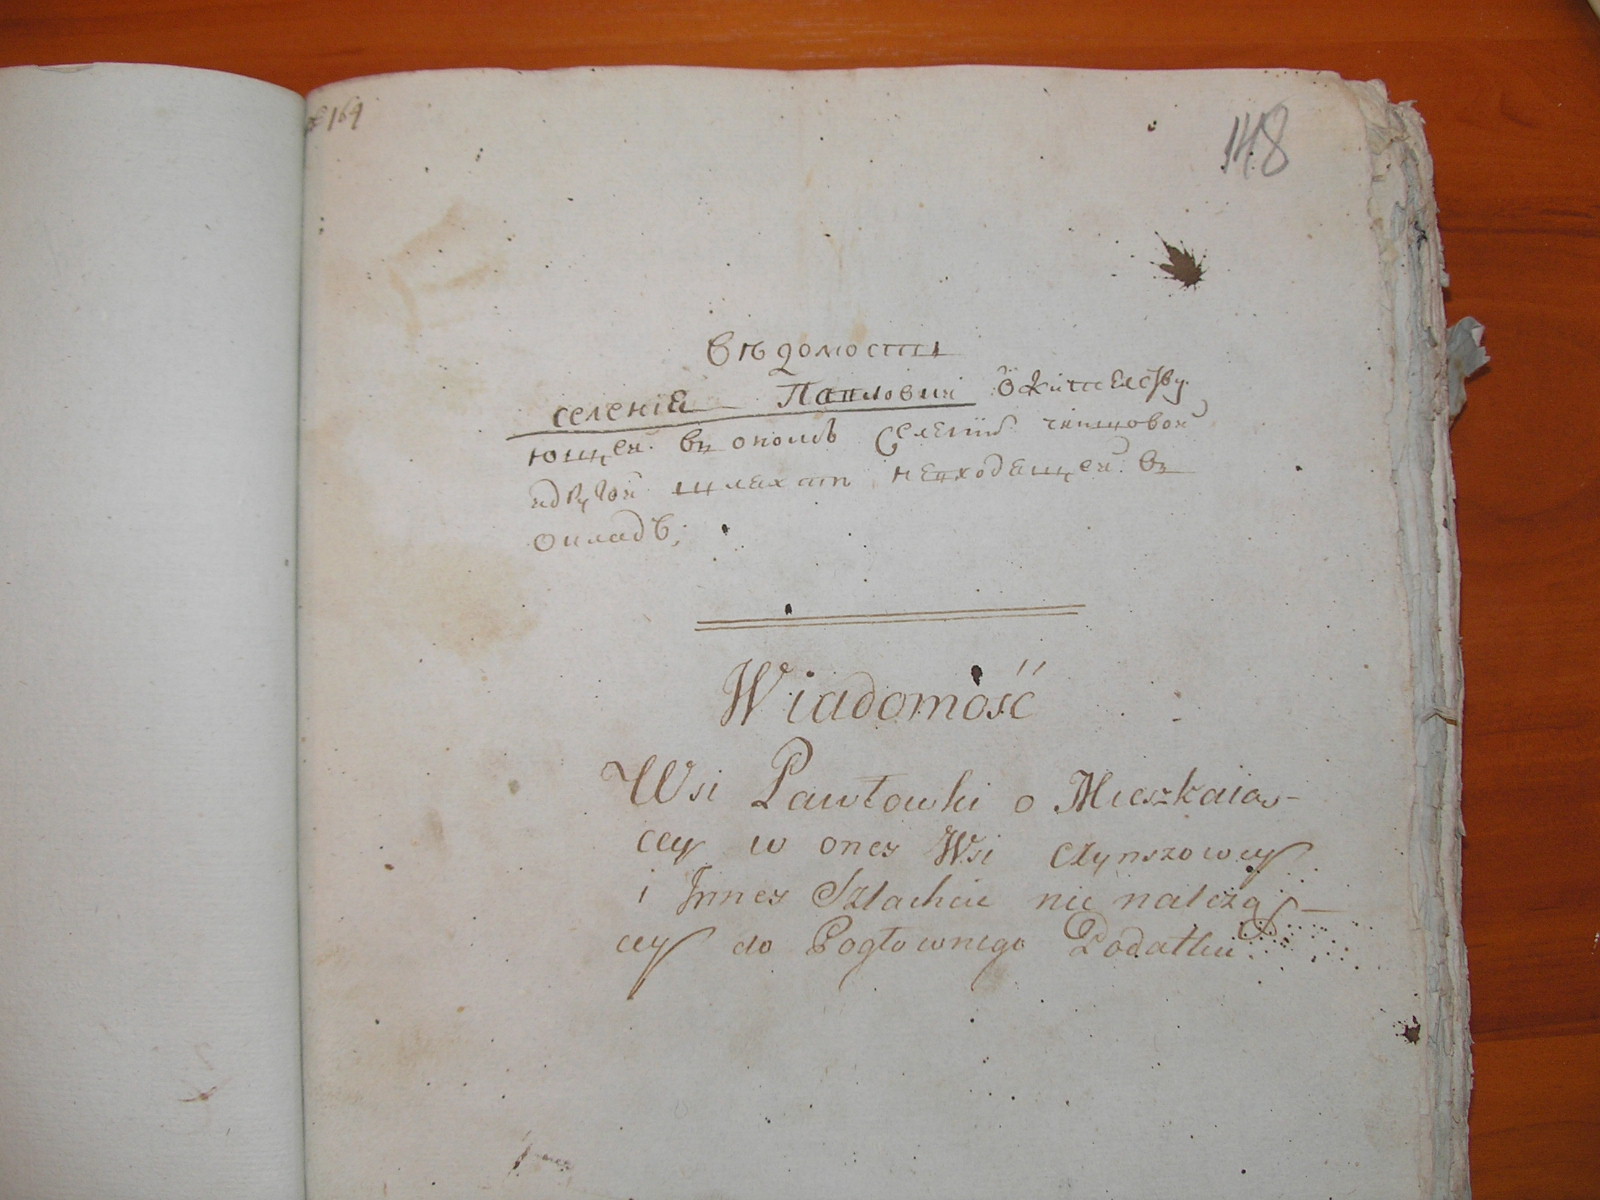 № 164
148
вѣдомость
селенія Павловки о жителству
ющей въ ономъ селеніи чиншовой
и другой шляхты не входящей въ
окладъ;
Wiadomość
Wsi Pawłowki o Mieszkaią-
cey w oney Wsi Czynszowey
i Inney Szlachcie nie należą-
cey do Pogłownego Podatku